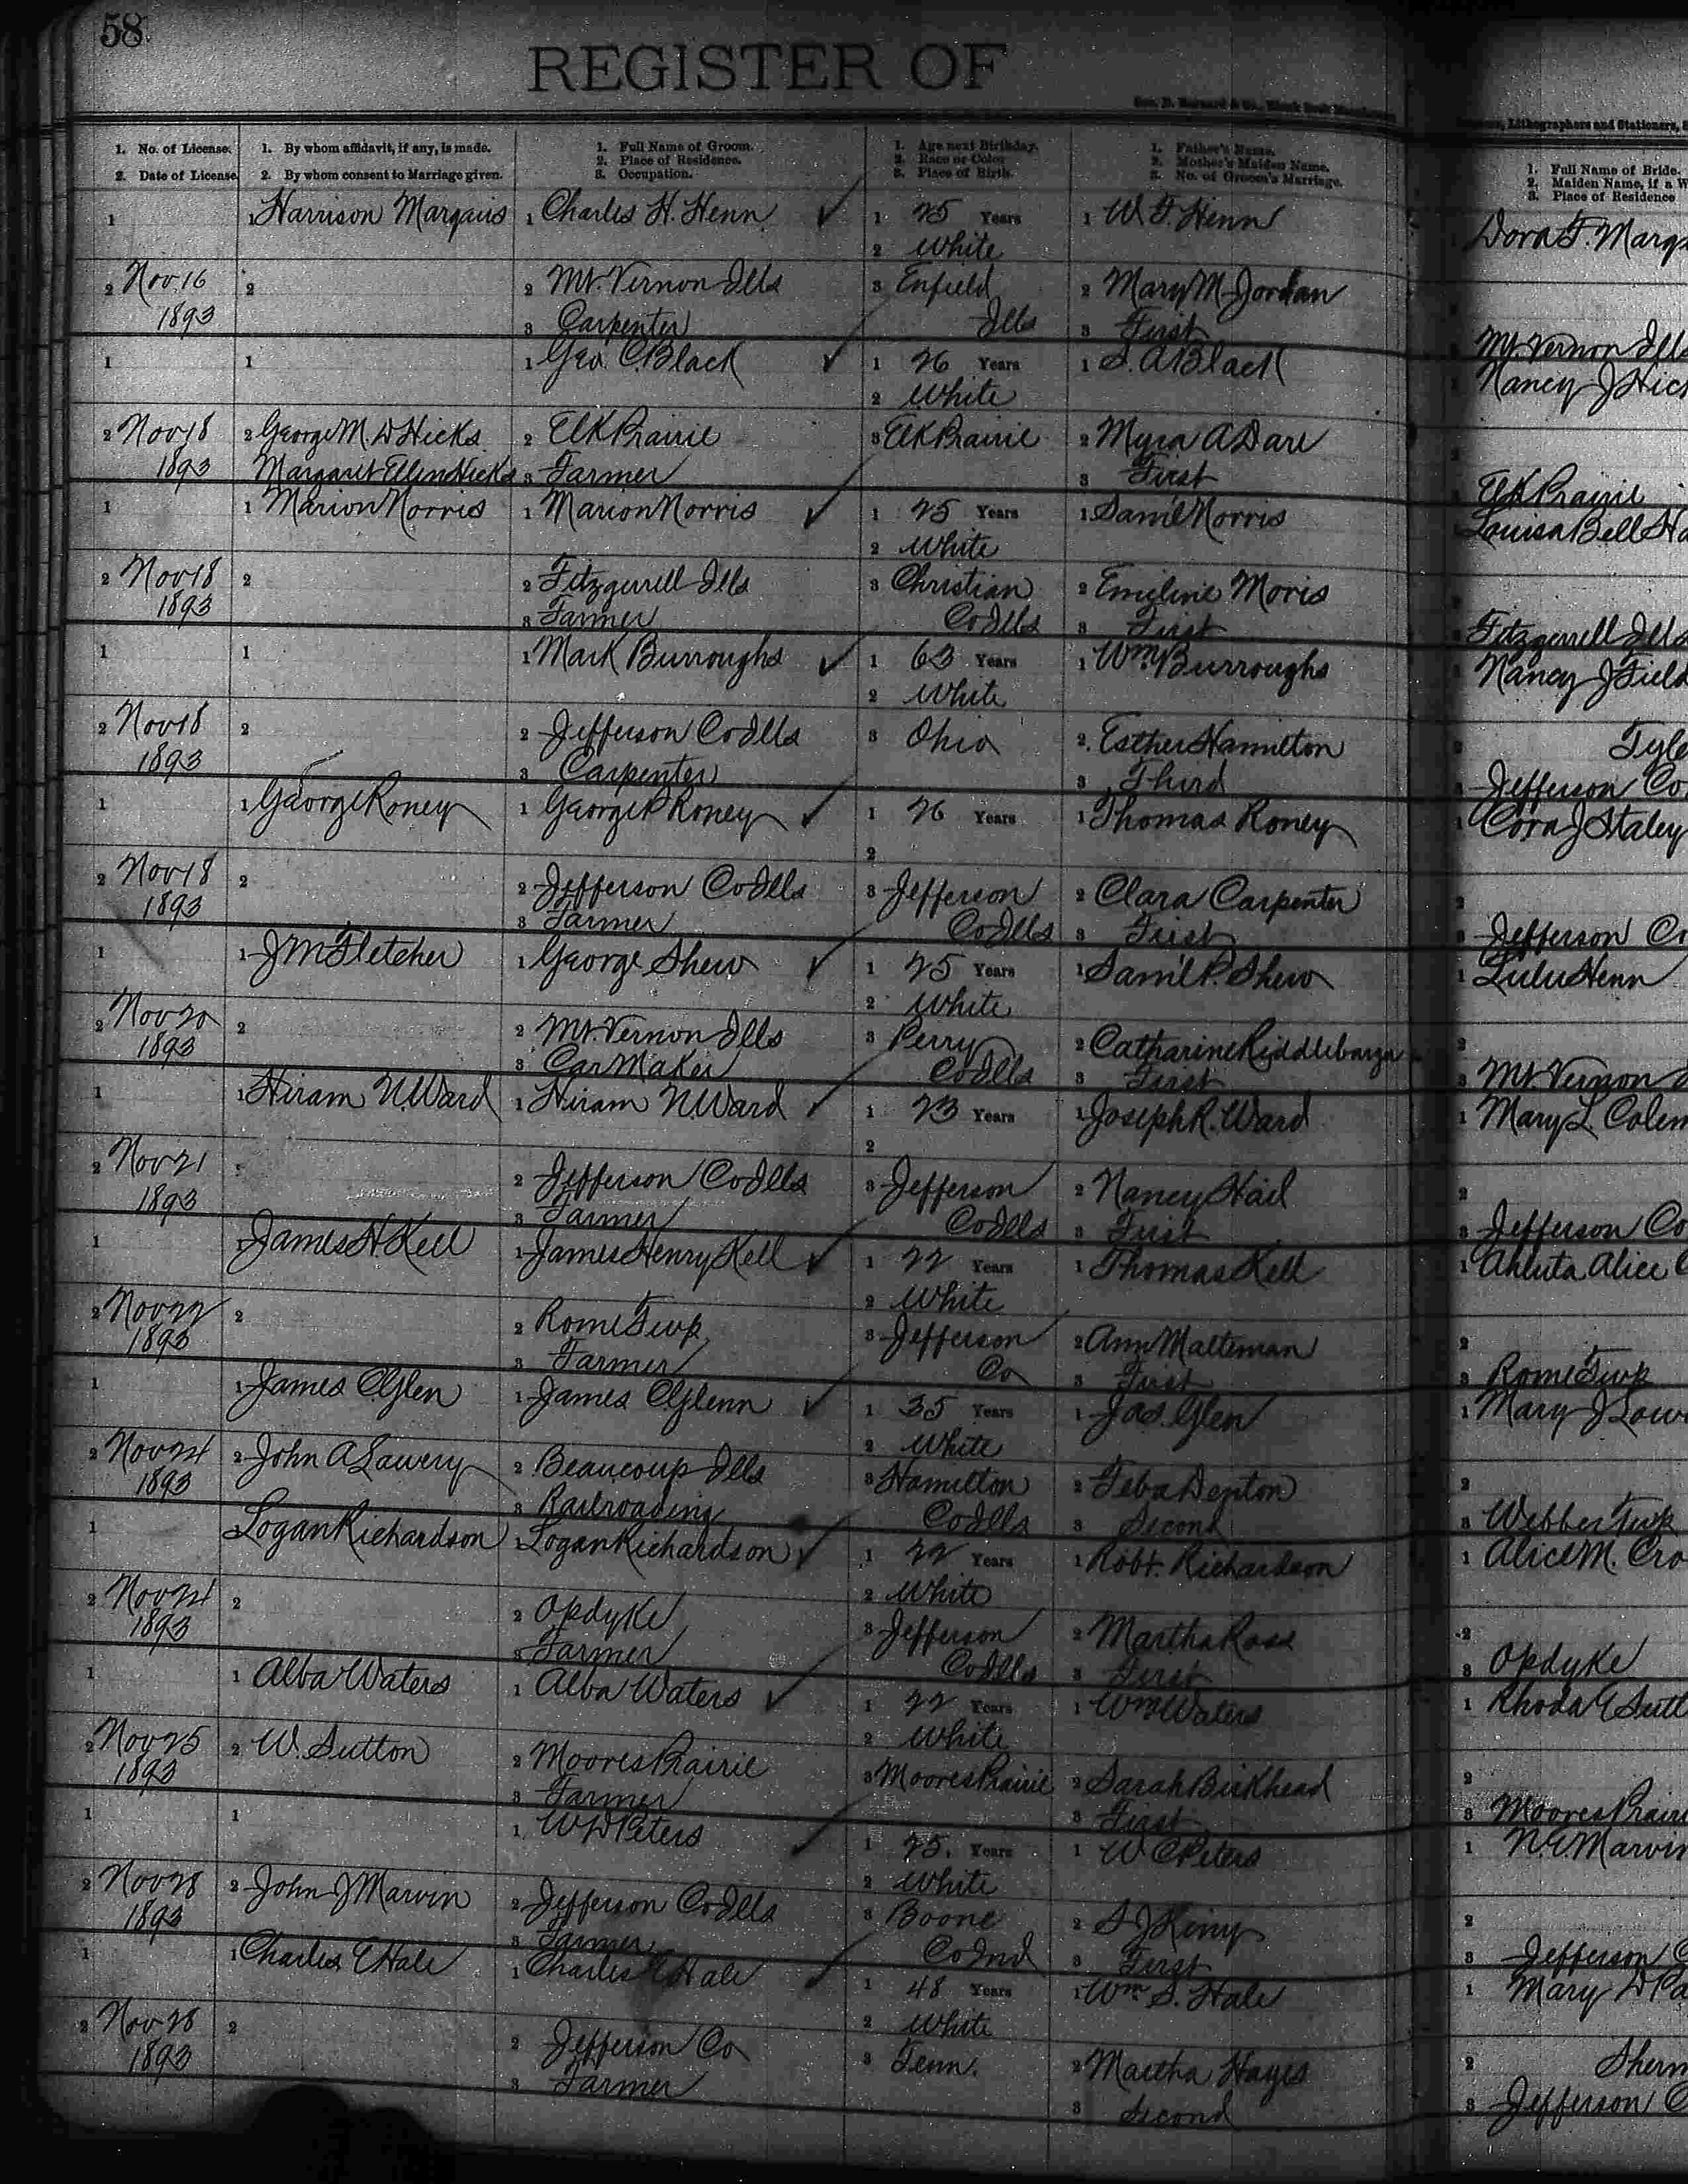 58
REGISTER OF
Geo. D. Barnard & Co., Blank Book
Lithographers and Stationers,
1. No. of License.
2. Date of License.
1. By whom affidavit, if any, is made.
2. By whom consent to Marriage given.
1. Full Name of Groom.
2. Place of Residence.
3. Occupation.
1. Age next Birthday.
2. Race or Color
3. Place of Birth.
1. Father's Name.
2. Mother's Maiden Name.
3. No. of Groom's Marriage.
1. Full Name of Bride.
2. Maiden Name, if a W
3. Place of Residence
1 1 Harrison Marquis 1 Charles H. Henn 1 25 Years 1 W. F. Henn Dora F. Marq
2 White
2 Nov. 16 2 2 Mt. Vernon Ills 3 Enfield 2 Mary M Jordan
1893 3 Carpenter Ills 3 First Mt. Vernon Ills
1 1 1 Geo. C. Black 1 26 Years 1 S. A Black Nancy J Hick
2 White
2 Nov 18 2 George M. D Hicks 2 Elk Prairie 3 Elk Prairie 2 Myra A Dare
1893 Margaret Ellen Hicks 3 Farmer 3 First Elk Prairie
1 1 Marion Norris 1 Marion Norris 1 25 Years 1 Saml Norris Louisa Bell Ha
2 White
2 Nov 18 2 2 Fitzgerrell Ills 3 Christian 2 Emiline Moris
1893 3 Farmer Co Ills 3 First Fitzgerrell Ills
1 1 1 Mark Burroughs 1 63 Years 1 Wm. Burroughs Nancy J Field
2 White
2 Nov 18 2 2 Jefferson Co Ills 3 Ohio 2 Esther Hamilton Tyle
1893 3 Carpenter 3 Third Jefferson Co
1 1 George Roney 1 George P Roney 1 26 Years 1 Thomas Roney 1 Cora J Staley
2
2 Nov 18 2 2 Jefferson Co Ills 3 Jefferson 2 Clara Carpenter 2
1893 3 Farmer Co Ills 3 First 3 Jefferson Co
1 1 J M Fletcher 1 George Shew 1 25 Years 1 Saml P. Shew 1 Lulu Henn
2 White
2 Nov 20 2 2 Mt. Vernon Ills 3 Perry 2 Catharine Riddlebarger 2
1893 3 Car Maker Co Ills 3 First 3 Mt Vernon
1 1 Hiram N. Ward 1 Hiram N. Ward 1 23 Years 1 Joseph R. Ward 1 Mary L. Colem
2
2 Nov 21 2 Jefferson Co Ills 3 Jefferson 2 Nancy Hail 2
1893 3 Farmer Co Ills 3 First 3 Jefferson Co
1 1 James H Kell 1 James Henry Kell 1 22 Years 1 Thomas Kell 1 Ahluta Alice C
2 White
2 Nov 22 2 2 Rome Twp 3 Jefferson 2 Ann Malteman 2
1893 3 Farmer Co 3 First 3 Rome Twp
1 1 James C Glen 1 James C Glenn 1 35 Years 1 Jas. Glen 1 Mary J Low
2 White
2 Nov 24 2 John A Lawery 2 Beaucoup Ills 3 Hamilton 2 Feba Denton 2
1893 3 Railroading Co Ills 3 Second 3 Webber Twp
1 Logan Richardson 1 Logan Richardson 1 22 Years 1 Robt. Richardson 1 Alice M. Cro
2 White
2 Nov 24 2 2 Opdyke 3 Jefferson 2 Martha Ross 2
1893 3 Farmer Co Ills 3 First 3 Opdyke
1 1 Alba Waters 1 Alba Waters 1 22 Years 1 Wm Waters 1 Rhoda E Sutt
2 White
2 Nov 25 2 W. Sutton 2 Moores Prairie 3 Moores Prairie 2 Sarah Birkhead 2
1893 3 Farmer 3 First 3 Moores Prairi
1 1 1 W D Peters 1 25 Years 1 W C Peters 1 N. E Marvin
2 White
2 Nov 28 2 John J Marvin 2 Jefferson Co Ills 3 Boone 2 S J King 2
1893 3 Farmer Co Ind 3 First 3 Jefferson C
1 1 Charles E Hale 1 Charles E Hale 1 48 Years 1 Wm. S. Hale 1 Mary D Pa
2 White
2 Nov 28 2 2 Jefferson Co 3 Tenn. 2 Martha Hayes 2 Sherm
1893 3 Farmer 3 Second 3 Jefferson C